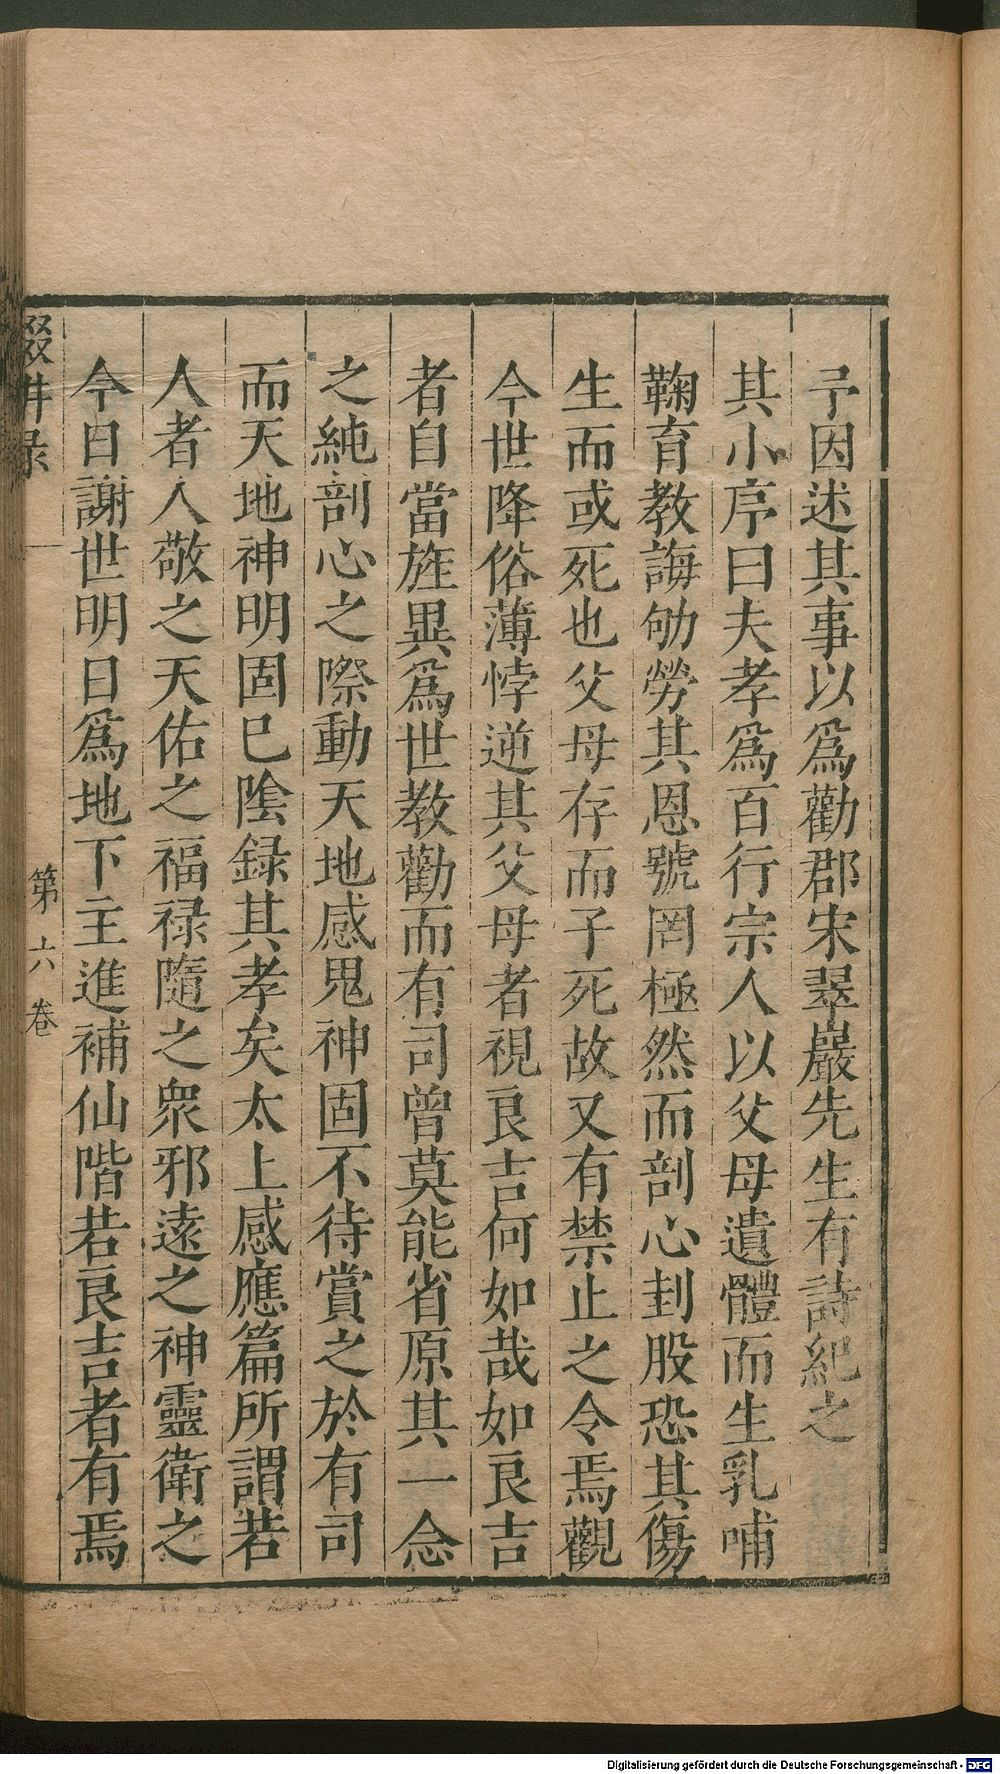 予因述其事以爲勸郡宋翠巖先生有詩紀之
其小序曰夫孝爲百行宗人以父母遺體而生乳哺
鞠育教誨劬勞其恩號罔極然而剖心刲股恐其傷
生而或死也父母存而子死故又有禁止之令焉觀
今世降俗薄悖逆其父母者視良吉何如哉如良吉
者自當旌異爲世教勸而有司曾莫能省原其一念
之純剖心之際動天地感鬼神固不待賞之於有司
而天地神明固已陰錄其孝矣太上感應篇所謂若
人者人敬之天佑之福禄隨之衆邪遠之神靈衛之
今日謝世明日爲地下主進補仙階若良吉者有焉
輟耕录
第六卷
Digitalisierung gefördert durch die Deutsche Forschungsgemeinschaft - DFG